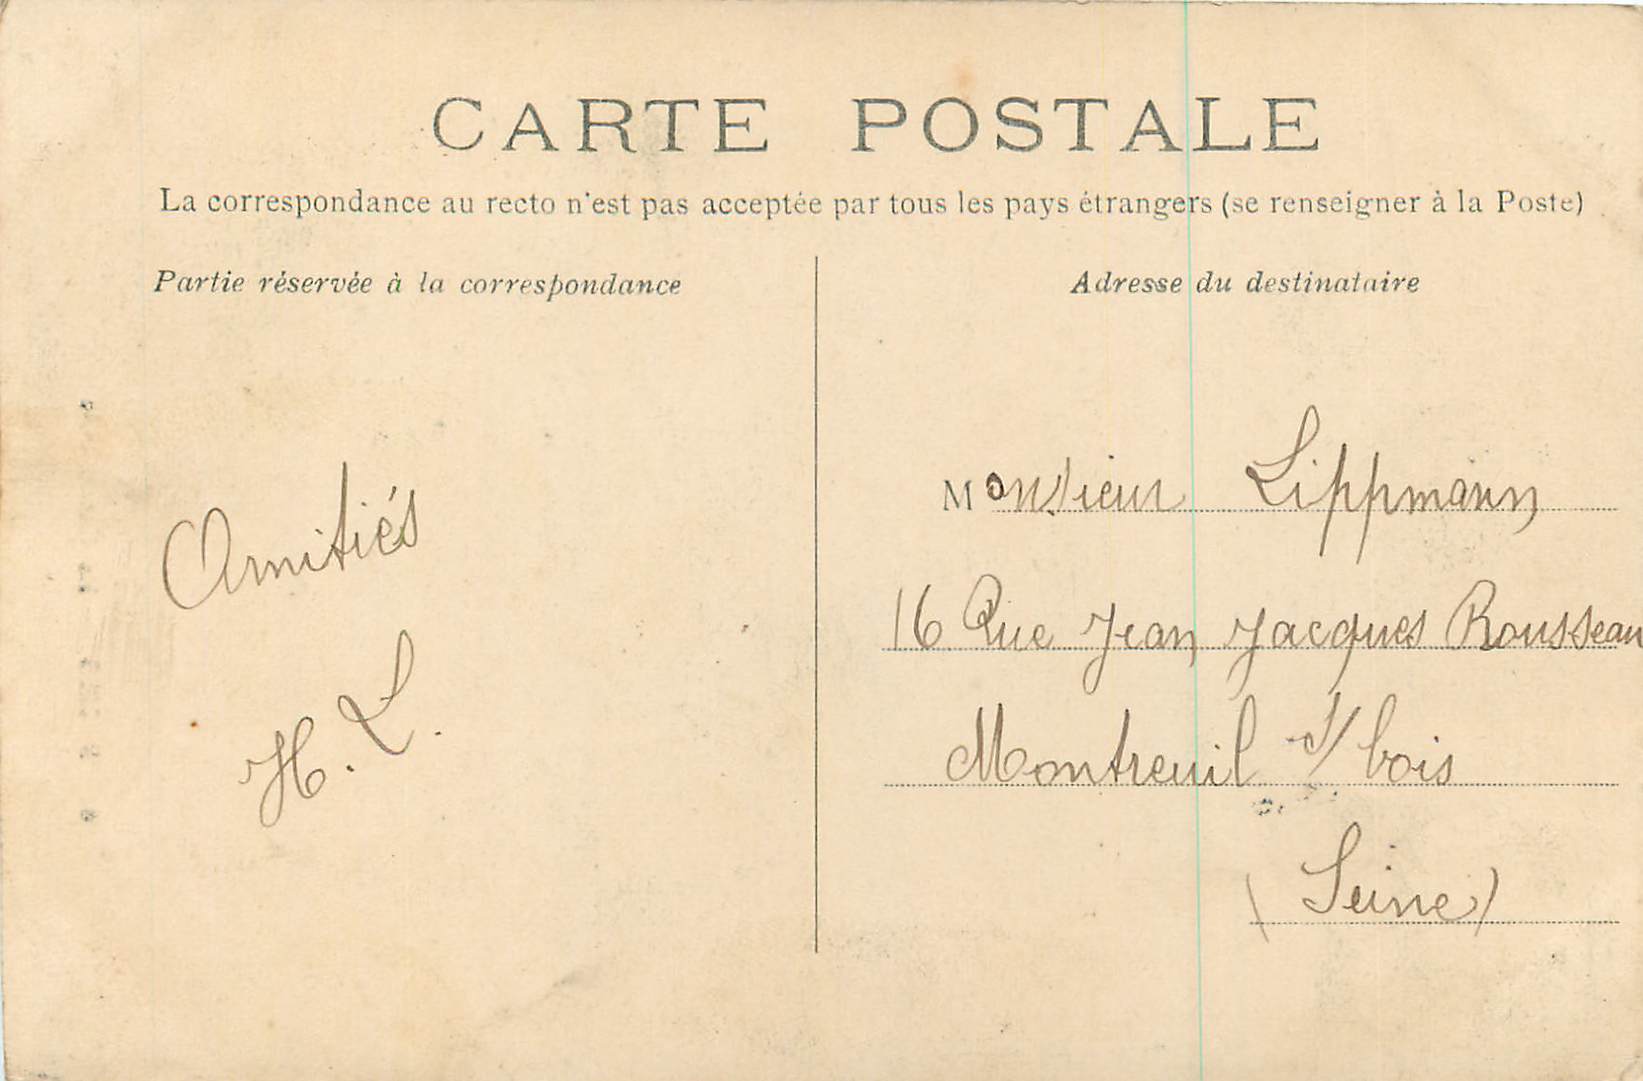 CARTE POSTALE
La correspondance au recto n'est pas acceptée par tous les pays étrangers (se renseigner à la Poste)
Partie réservée à la correspondance
Adresse du destinataire
Amitiés
H. L.
Monsieur Lippmann
16 Rue Jean Jacques Rousseau
Montreuil s/ bois
(Seine)